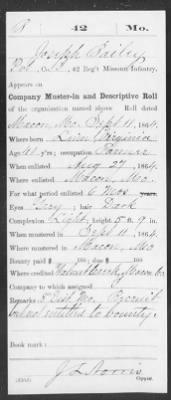 B 42 Mo.
Joseph Bailey
Pvt., Co. , 42 Reg't Missouri Infantry.
Appears on
Company Muster-in and Descriptive Roll
of the organization named above. Roll dated
Macon, Mo. Sept 11, 1864.
Where born Virginia
Age 41 y'rs; occupation Farmer
When enlisted Aug 27, 1864.
Where enlisted Macon, Mo.
For what period enlisted 6 mos. years.
Eyes Grey; hair Dark
Complexion Light; height 5 ft. 9 in.
When mustered in Sept 11, 1864
Where mustered in Macon, Mo
Bounty paid $ 100; due $ 100
Where credited Walnut Creek, Macon Co
To which assigned
Remarks: Mo. Recruit
not entitled to bounty.
Book mark:
J L Norris
Copyist.